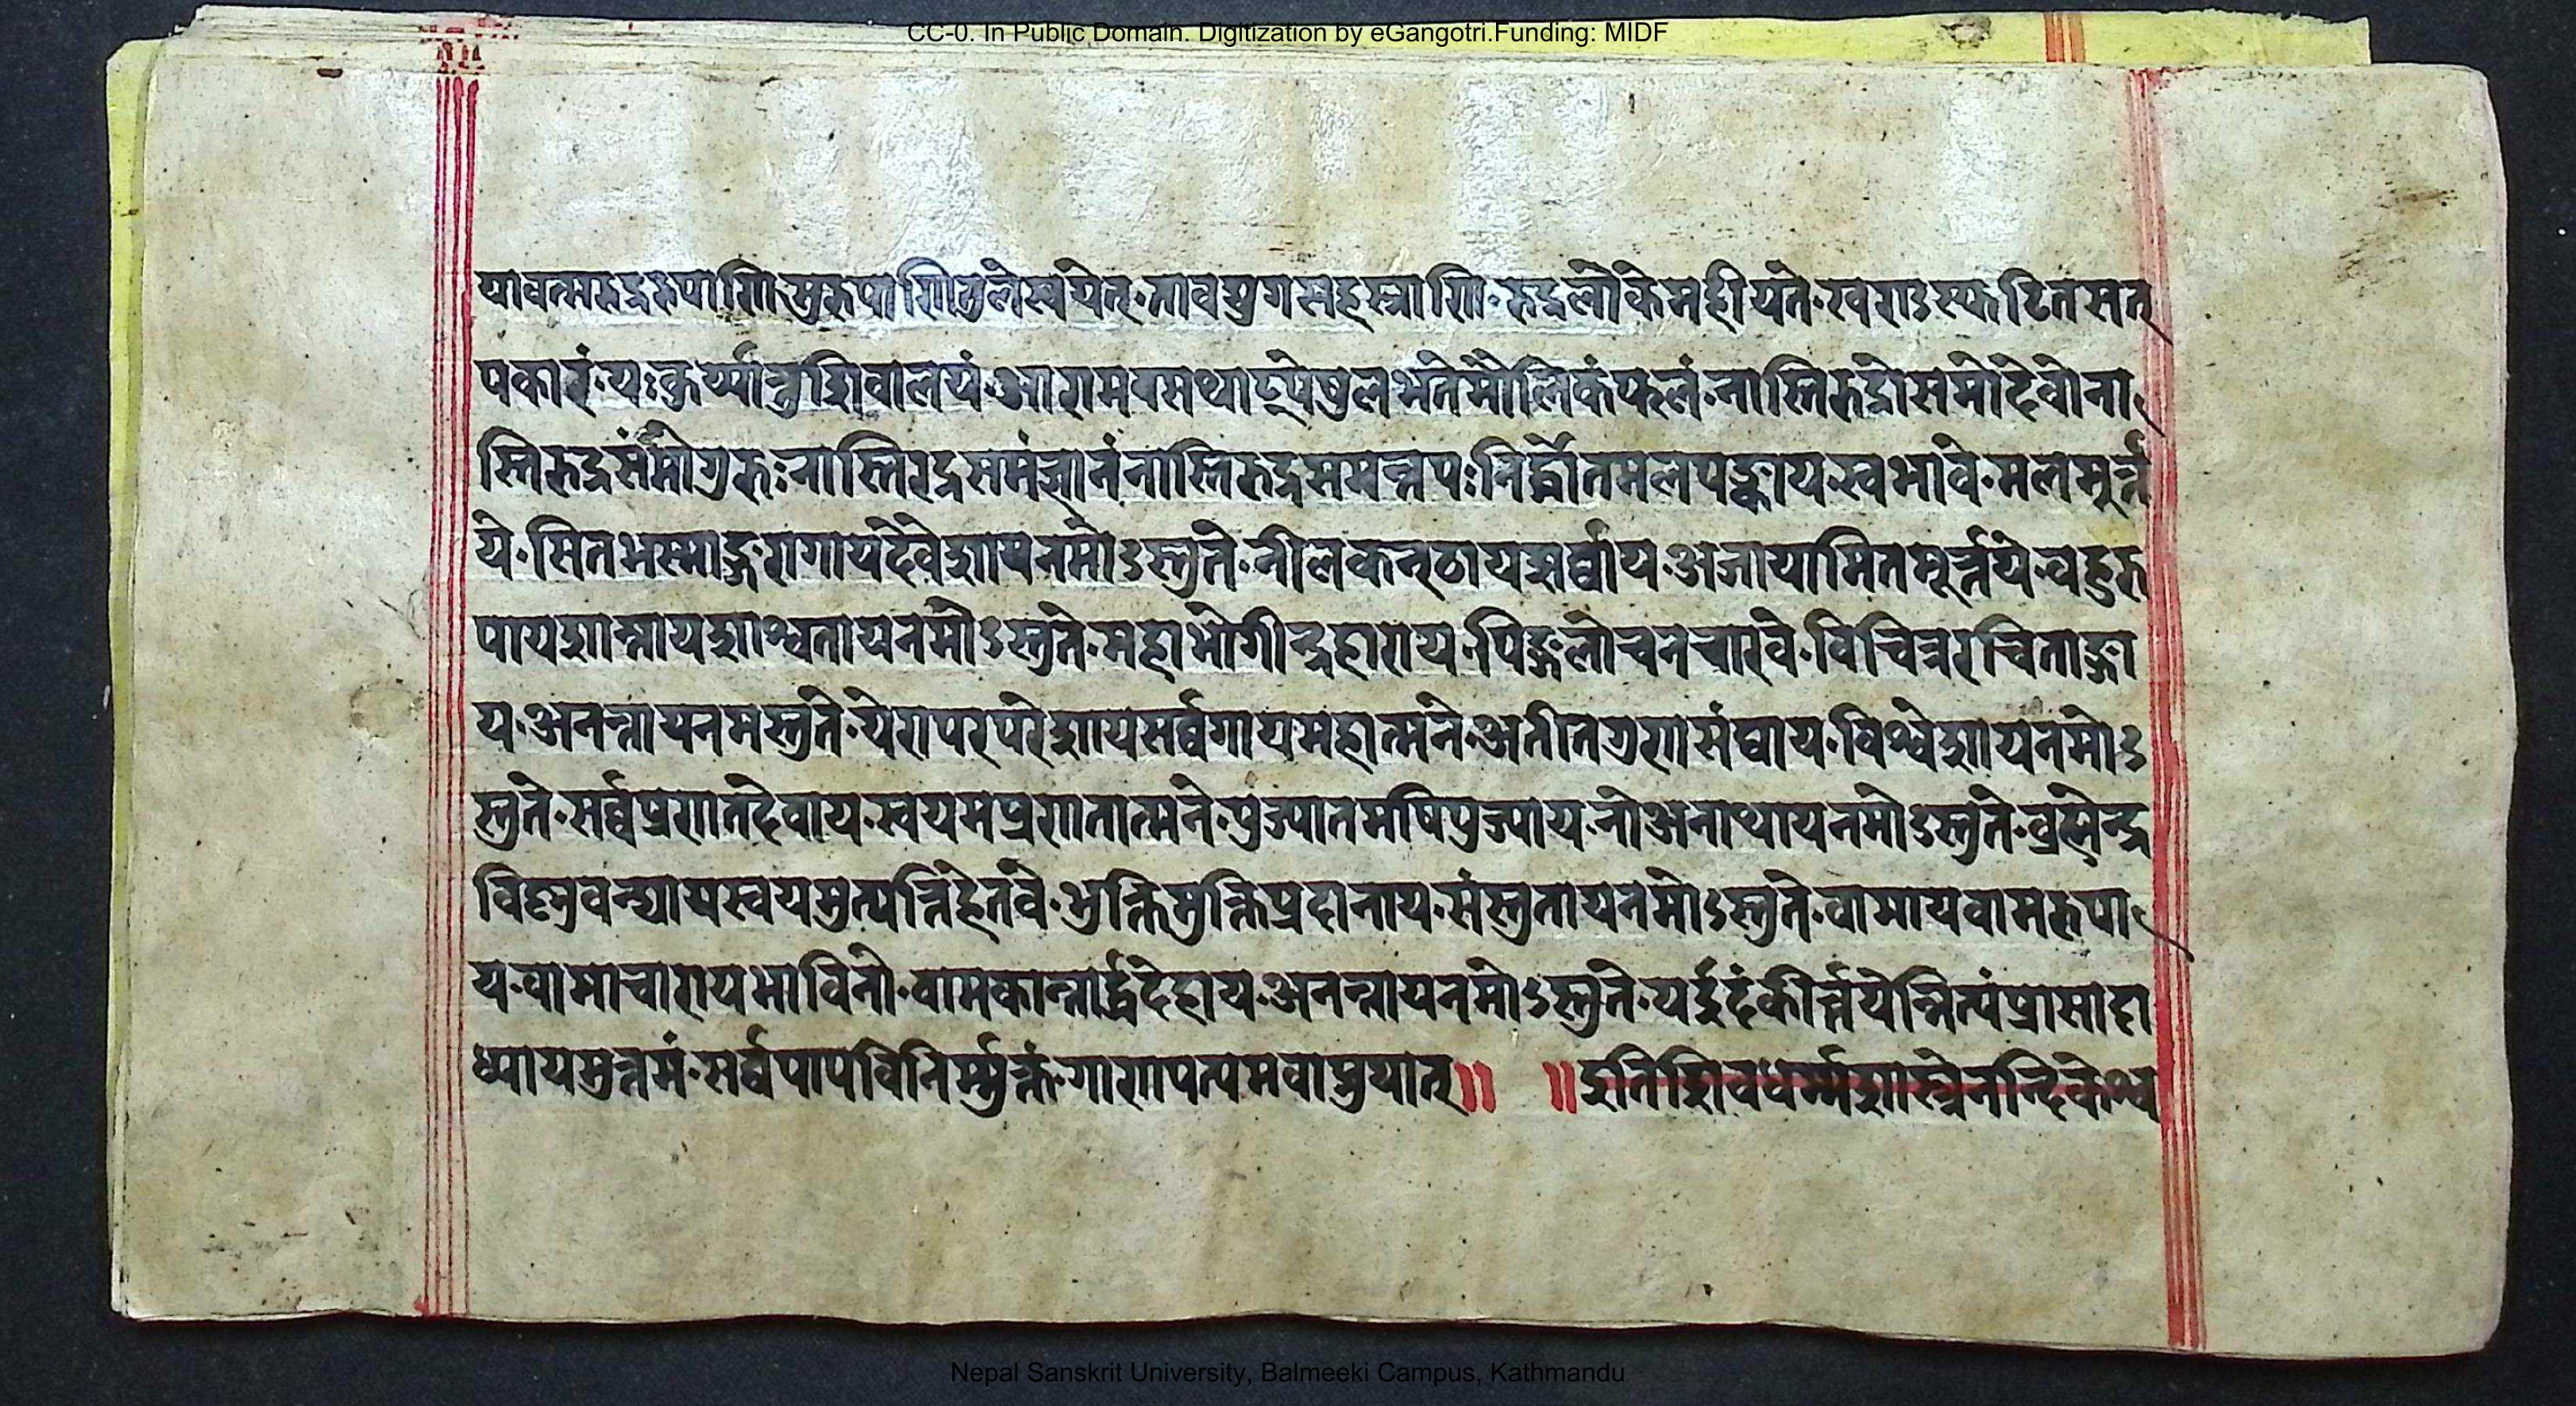 CC-0. In Public Domain. Digitization by eGangotri.Funding: MIDF
यावत्मरुद्ररुपाणि सुरुपाणि लेखयेत् तावद्युगसहस्त्राणि रुद्रलोके महीयते खराऽ स्फटितसत्
पकारं यः कुर्य्यात्तु शिवालयं आरामवसथाद्येषु लभते मौलिकं फलं नास्ति रुद्रो समो देवो ना
स्ति रुद्रसंमो ग्रुरुः नास्ति रद्रसमं ज्ञानं नास्ति रुद्रसमन्नपः निर्द्धोतमलपङ्काय स्वभावे मलमुर्त्त
ये सितभस्माङ्गरागाय देवेशाय नमोऽस्तुते नीलकन्ठाय सर्व्वाय अजायामितमूर्त्तये वहुरु
पाय शान्ताय शाश्वताय नमोऽस्तुते महाभोगीन्द्रहाराय पिङ्गलोचनचारवे विचित्ररचिताङ्गा
य अनन्ताय नमस्तुते येरापरपरेशाय सर्व्वगाय महात्मने अतीतग्रुणसंघाय विश्वेशाय नमोऽ
स्तुते सर्व्वप्रणतदेवाय स्वयमप्रणतात्मने पुज्यातमषिपुज्याय नो अनाथाय नमोऽस्तुते व्रह्मेन्द्र
विष्णुवन्द्याय स्वयमुत्पन्निहेतवे भुक्तिमुक्तिप्रदानाय संस्तुताय नमोऽस्तुते वामाय वामरुपा
य वामाचाराय भाविनो वामकान्तार्द्धदेहाय अनन्ताय नमोऽस्तुते यर्इदं कीर्त्तयेन्नित्यं प्रासादा
ध्यायमुत्तमं सर्व्वपापविनिर्म्मुक्तं गाणपत्यमवाप्नुयात् ॥ ॥ इति शिवधर्म्मशास्त्रे नन्दिकेश्व
Nepal Sanskrit University, Balmeeki Campus, Kathmandu